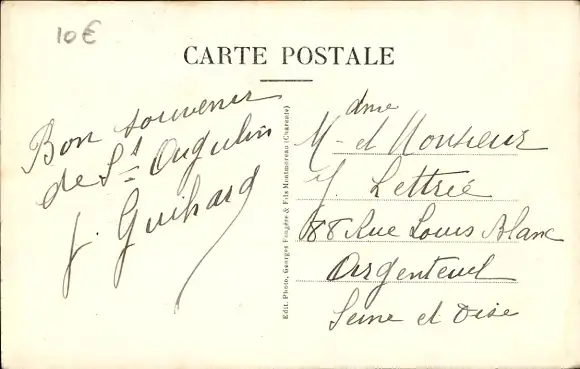 10€
CARTE POSTALE
Bon souvenir
de St Augulin
J. Guihard
Edit. Photo, Georges Faugère & Fils Montmoreau (Charente)
Mdme et Monsieur
J. Lettrie
88 Rue Louis Blanc
Argenteuil
Seine et Oise